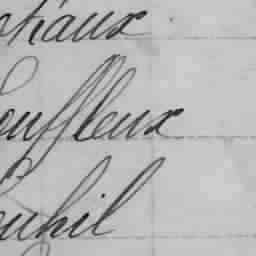 otiaux
ouffleux
ouhil